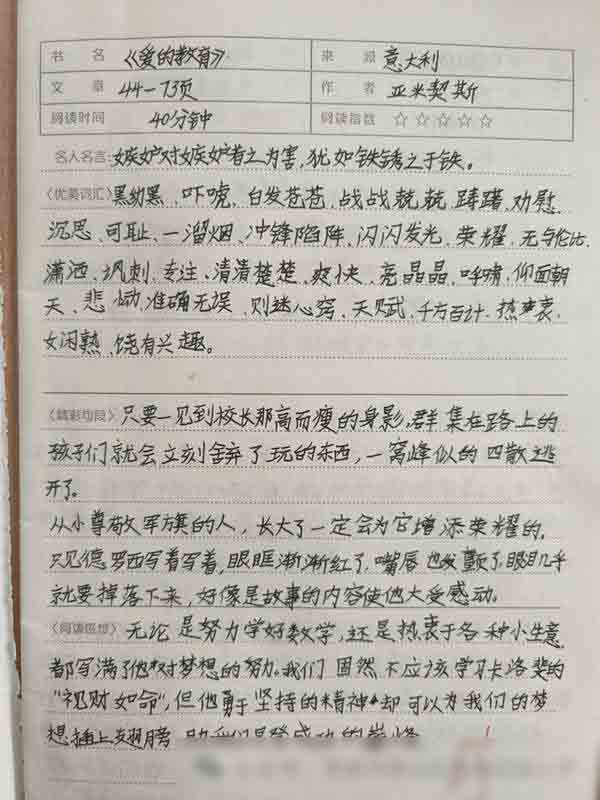 书 名 《爱的教育》 来 源 意大利
文 章 44—73页 作 者 亚米契斯
阅读时间 40分钟 阅读指数 ☆☆☆☆☆
名人名言: 嫉妒对嫉妒者之为害,犹如铁锈之于铁。
〈优美词汇〉黑幼黑、吓唬、白发苍苍、战战兢兢、踌躇、劝慰、
沉思、可耻、一溜烟、冲锋陷阵、闪闪发光、荣耀、无与伦比、
潇洒、讽刺、专注、清清楚楚、爽快、亮晶晶、呼啸、仰面朝
天、悲恸、准确无误、财迷心窍、天赋、千方百计、热衷、
女闲熟、饶有兴趣。
〈精彩句段〉只要一见到校长那高而瘦的身影,群集在路上的
孩子们就会立刻舍弃了玩的东西,一窝蜂似的四散逃
开了。
从小尊敬军旗的人,长大了一定会为它增添荣耀的。
只见德罗西写着写着,眼眶渐渐红了,嘴唇也发颤了,眼泪几乎
就要掉落下来,好像是故事的内容使他大受感动。
〈阅读感想〉无论是努力学好数学,还是热衷于各种小生意
都写满了他对梦想的努力。我们固然不应该学习卡洛斐的
“视财如命”,但他勇于坚持的精神却可以为我们的梦
想插上翅膀